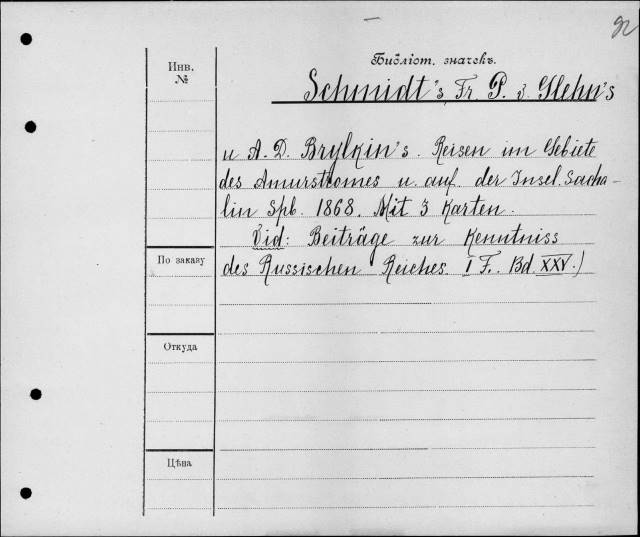 92
Библіот. значекъ.
Инв.
№
Schmidt's, Fr. P. v. Glehn's
u A. D. Brylkin's. Reisen im Gebiete
des Amurstromes u. auf. der Insel. Sacha-
lin Spb. 1868. Mit 3 Karten.
Vid: Beiträge zur Kenntniss
des Russischen Reiches. I F. Bd. XXV.)
По заказу
Откуда
Цѣна